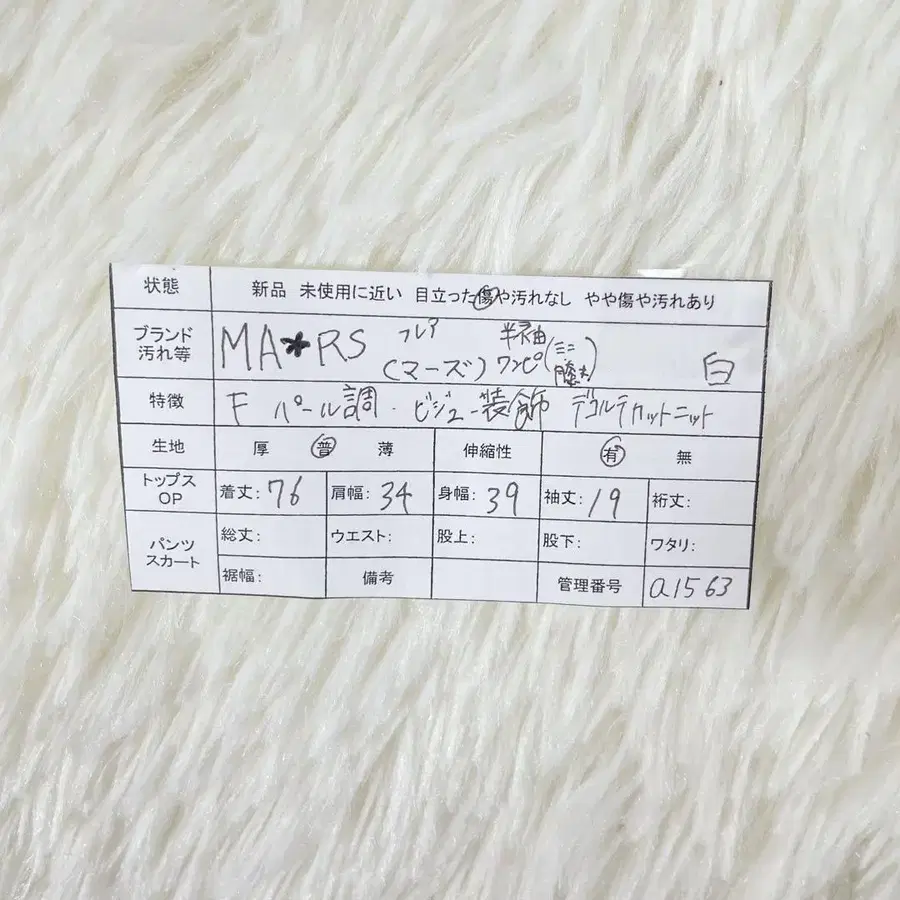 状態 新品 未使用に近い 目立った傷や汚れなし やや傷や汚れあり
ブランド 汚れ等 MA★RS (マーズ) フレア 半袖 ワンピ(ミニ 膝丈) 白
特徴 F パール調・ビジュー装飾 デコルテカットニット
生地 厚 普 薄 伸縮性 有 無
トップス OP 着丈: 76 肩幅: 34 身幅: 39 袖丈: 19 裄丈:
パンツ スカート 総丈: ウエスト: 股上: 股下: ワタリ:
裾幅: 備考 管理番号 a1563